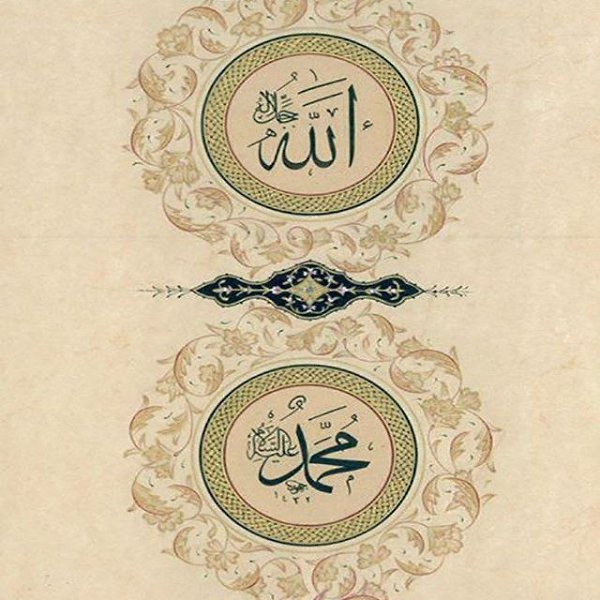 الله جل جلاله
محمد عليه السلام
١٤٣٢